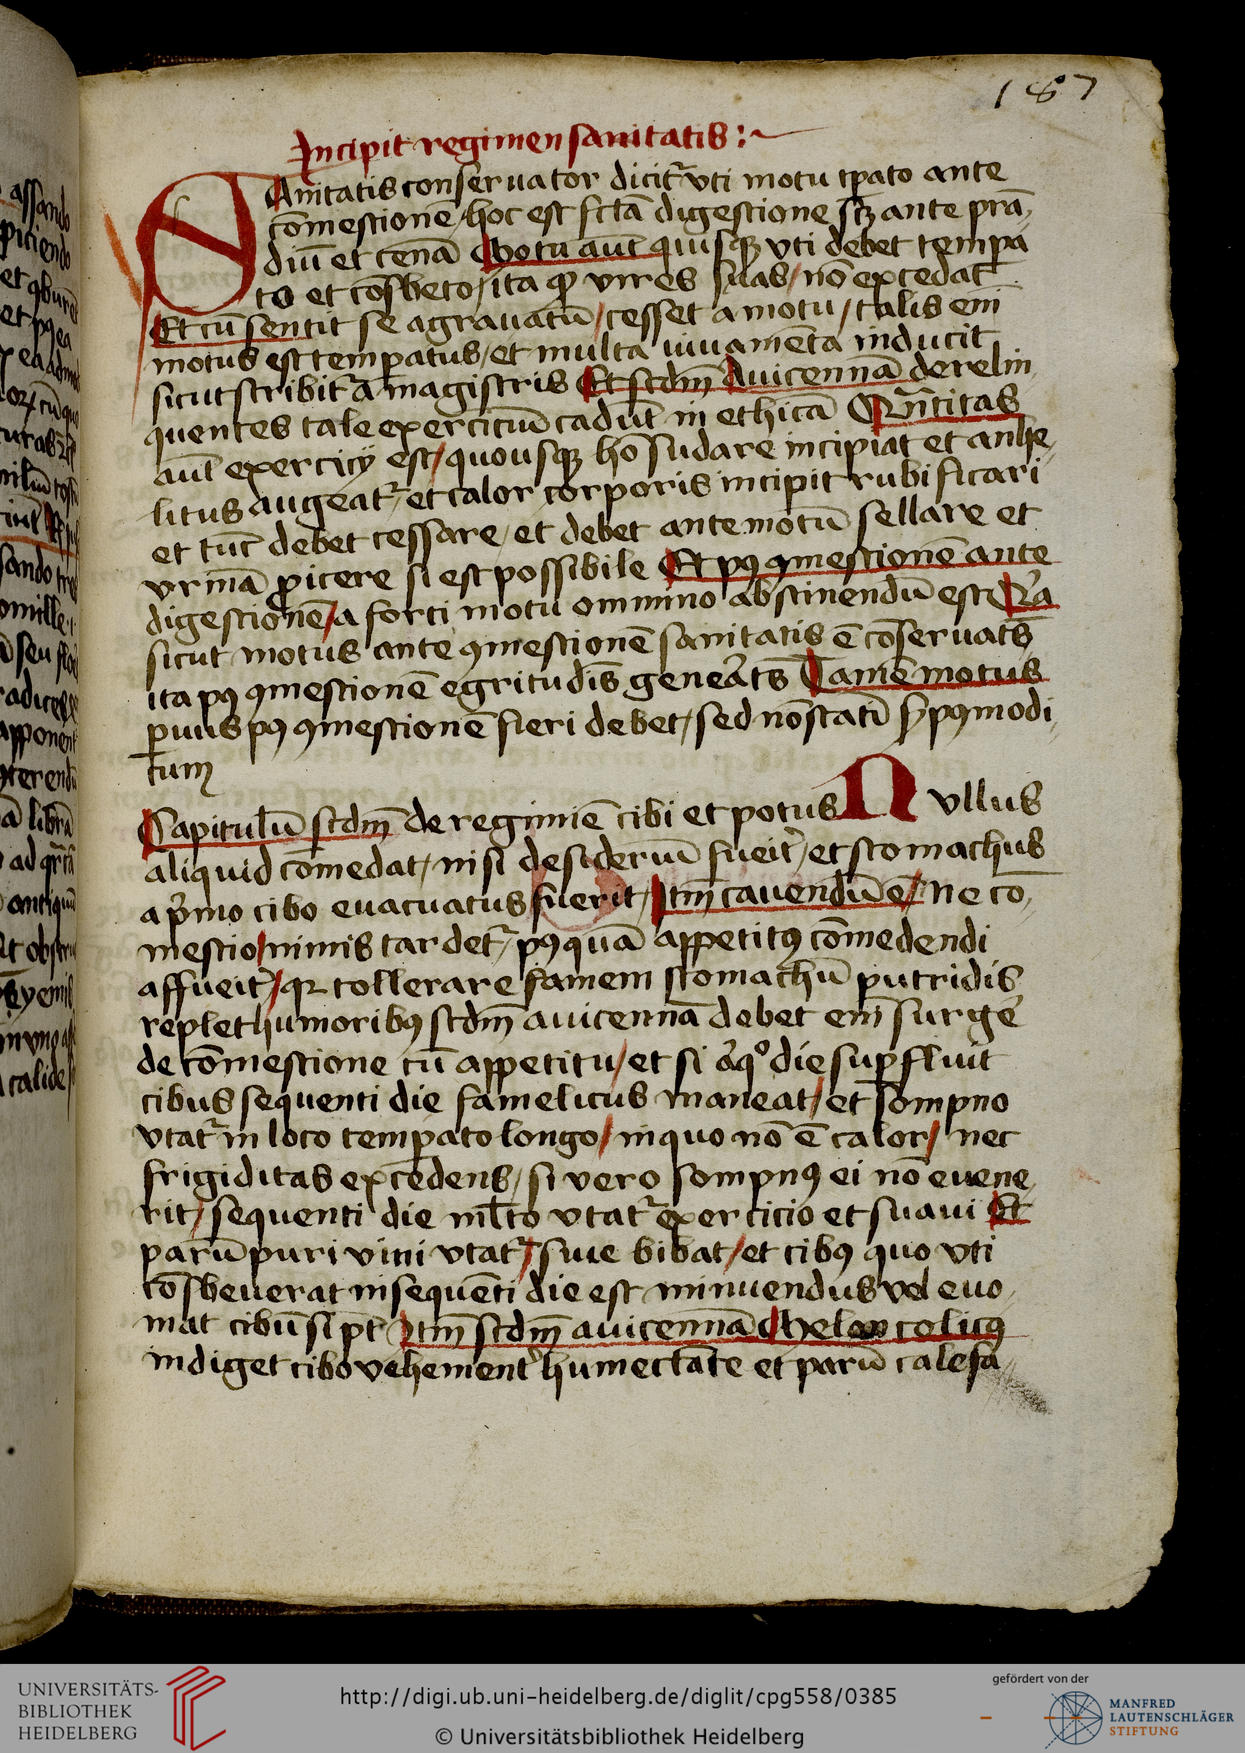 187
Incipit regimen sanitatis :~
SAnitatis conseruator dicit᷑ vti motu tp̄ato ante
cōmestionē / hoc est fctā digestione scꝫ ante prā,
diū et cenā Motu aut̄ quisqꝫ vti debet temꝑa
to et cōsueto / ita ꝙ vires suas / nō excedat
Et cū sentit se agrauatū / cesset a motu / talis eni̅
motus est temꝑatus / et multa iuuamēta inducit
sicut scribit᷑ a magistris Et scdm̄ Auicennā derelin,
quentes tale exercitiū cadūt in ethicā Qn̄titas
aut̄ exercicij est / quousqꝫ hō sudare incipiat et anhe,
litus augeat᷑ / et calor corporis incipit rubificari
et tūc debet cessare / et debet ante motū sellare et
vrinā ꝓicere si est possibile Et pꝰ ꝯmestionē ante
digestionē / a forti motu omnino abstinendū est Qr̄a
sicut motus ante ꝯmestionē sanitatis ē cōseruats̄
ita pꝰ ꝯmestionē egritudīs geneāts̄ Tamē motus
ꝑuus pꝰ ꝯmestionē fieri debet / sed nō statī s; pꝰ modi,
tum
Capitulū scdm̄ de regimīe cibi et potus Nvllus
aliquid cōmedat / nisi desideriū fueit᷑ / et stomachus
a p̄mo cibo euacuatus fuerit / Itm̄ cauendū ē / Ne cō,
mestio / nimis tardet᷑ / pꝰ quā appetitꝰ cōmedendi
affueit᷑ / qꝛ tollerare famem stomachū putridis
replet humoribꝰ scdm̄ auicennā debet eni̅ surge᷑
de cōmestione cū appetitu / et si āqͦ die suꝑfluit
cibus sequenti die famelicus maneat / et sompno
vtat᷑ in loco temꝑato longo / in quo nō ē calor / nec
frigiditas excedens / si vero sompnꝰ ei nō euene,
rit / sequenti die ml̄to vtat᷑ exercicio et suaui Et
parū puri vini vtat᷑ / siue bibat / et cibꝰ quo vti
cōsueuerat in sequēti die est minuendus vel euo,
mat cibū si pt̄ Itm̄ scdm̄ auicennā Melancolicꝰ
indiget cibo vehement᷑ humectāte et parū calefa,
UNIVERSITÄTS-
BIBLIOTHEK
HEIDELBERG
http://digi.ub.uni-heidelberg.de/diglit/cpg558/0385
© Universitätsbibliothek Heidelberg
gefördert von der
MANFRED
LAUTENSCHLÄGER
STIFTUNG